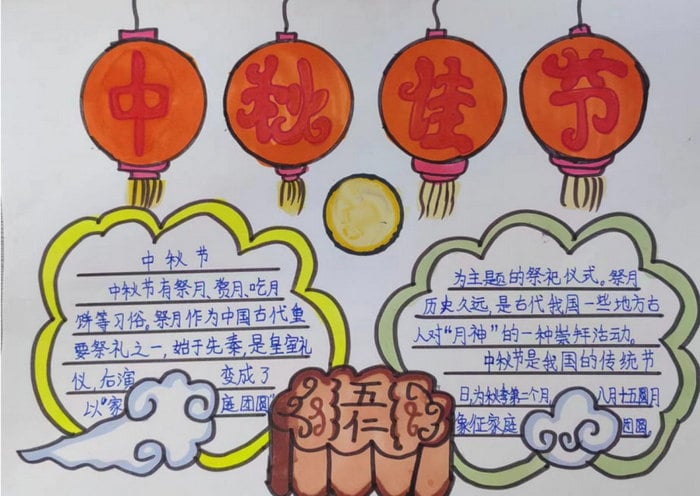 中秋佳节
中秋节
中秋节有祭月、赏月、吃月
饼等习俗。祭月作为中国古代重
要祭礼之一,始于先秦,是皇室礼
仪,后演 变成了
以“家 庭团圆”
为主题的祭祀仪式。祭月
历史久远,是古代我国一些地方古
人对“月神”的一种崇拜活动。
中秋节是我国的传统节
日,为秋季第二个月, 八月十五圆月
象征家庭 团圆。
五
仁